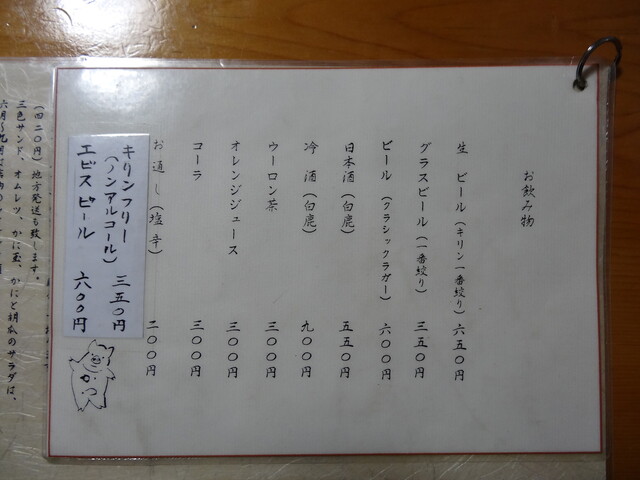 お飲み物
生 ビール(キリン一番絞り) 六五〇円
グラスビール(一番絞り) 三五〇円
ビール (クラシックラガー) 六〇〇円
日本酒(白鹿) 五五〇円
冷 酒(白鹿) 九〇〇円
ウーロン茶 三〇〇円
オレンジジュース 三〇〇円
コーラ 三〇〇円
お通し(塩辛) 二〇〇円
キリンフリー
(ノンアルコール) 三五〇円
エビスビール 六〇〇円
かつ
(四二〇円) 地方発送も致します。
三色サンド、オムレツ、かに玉、かにと胡瓜のサラダは、